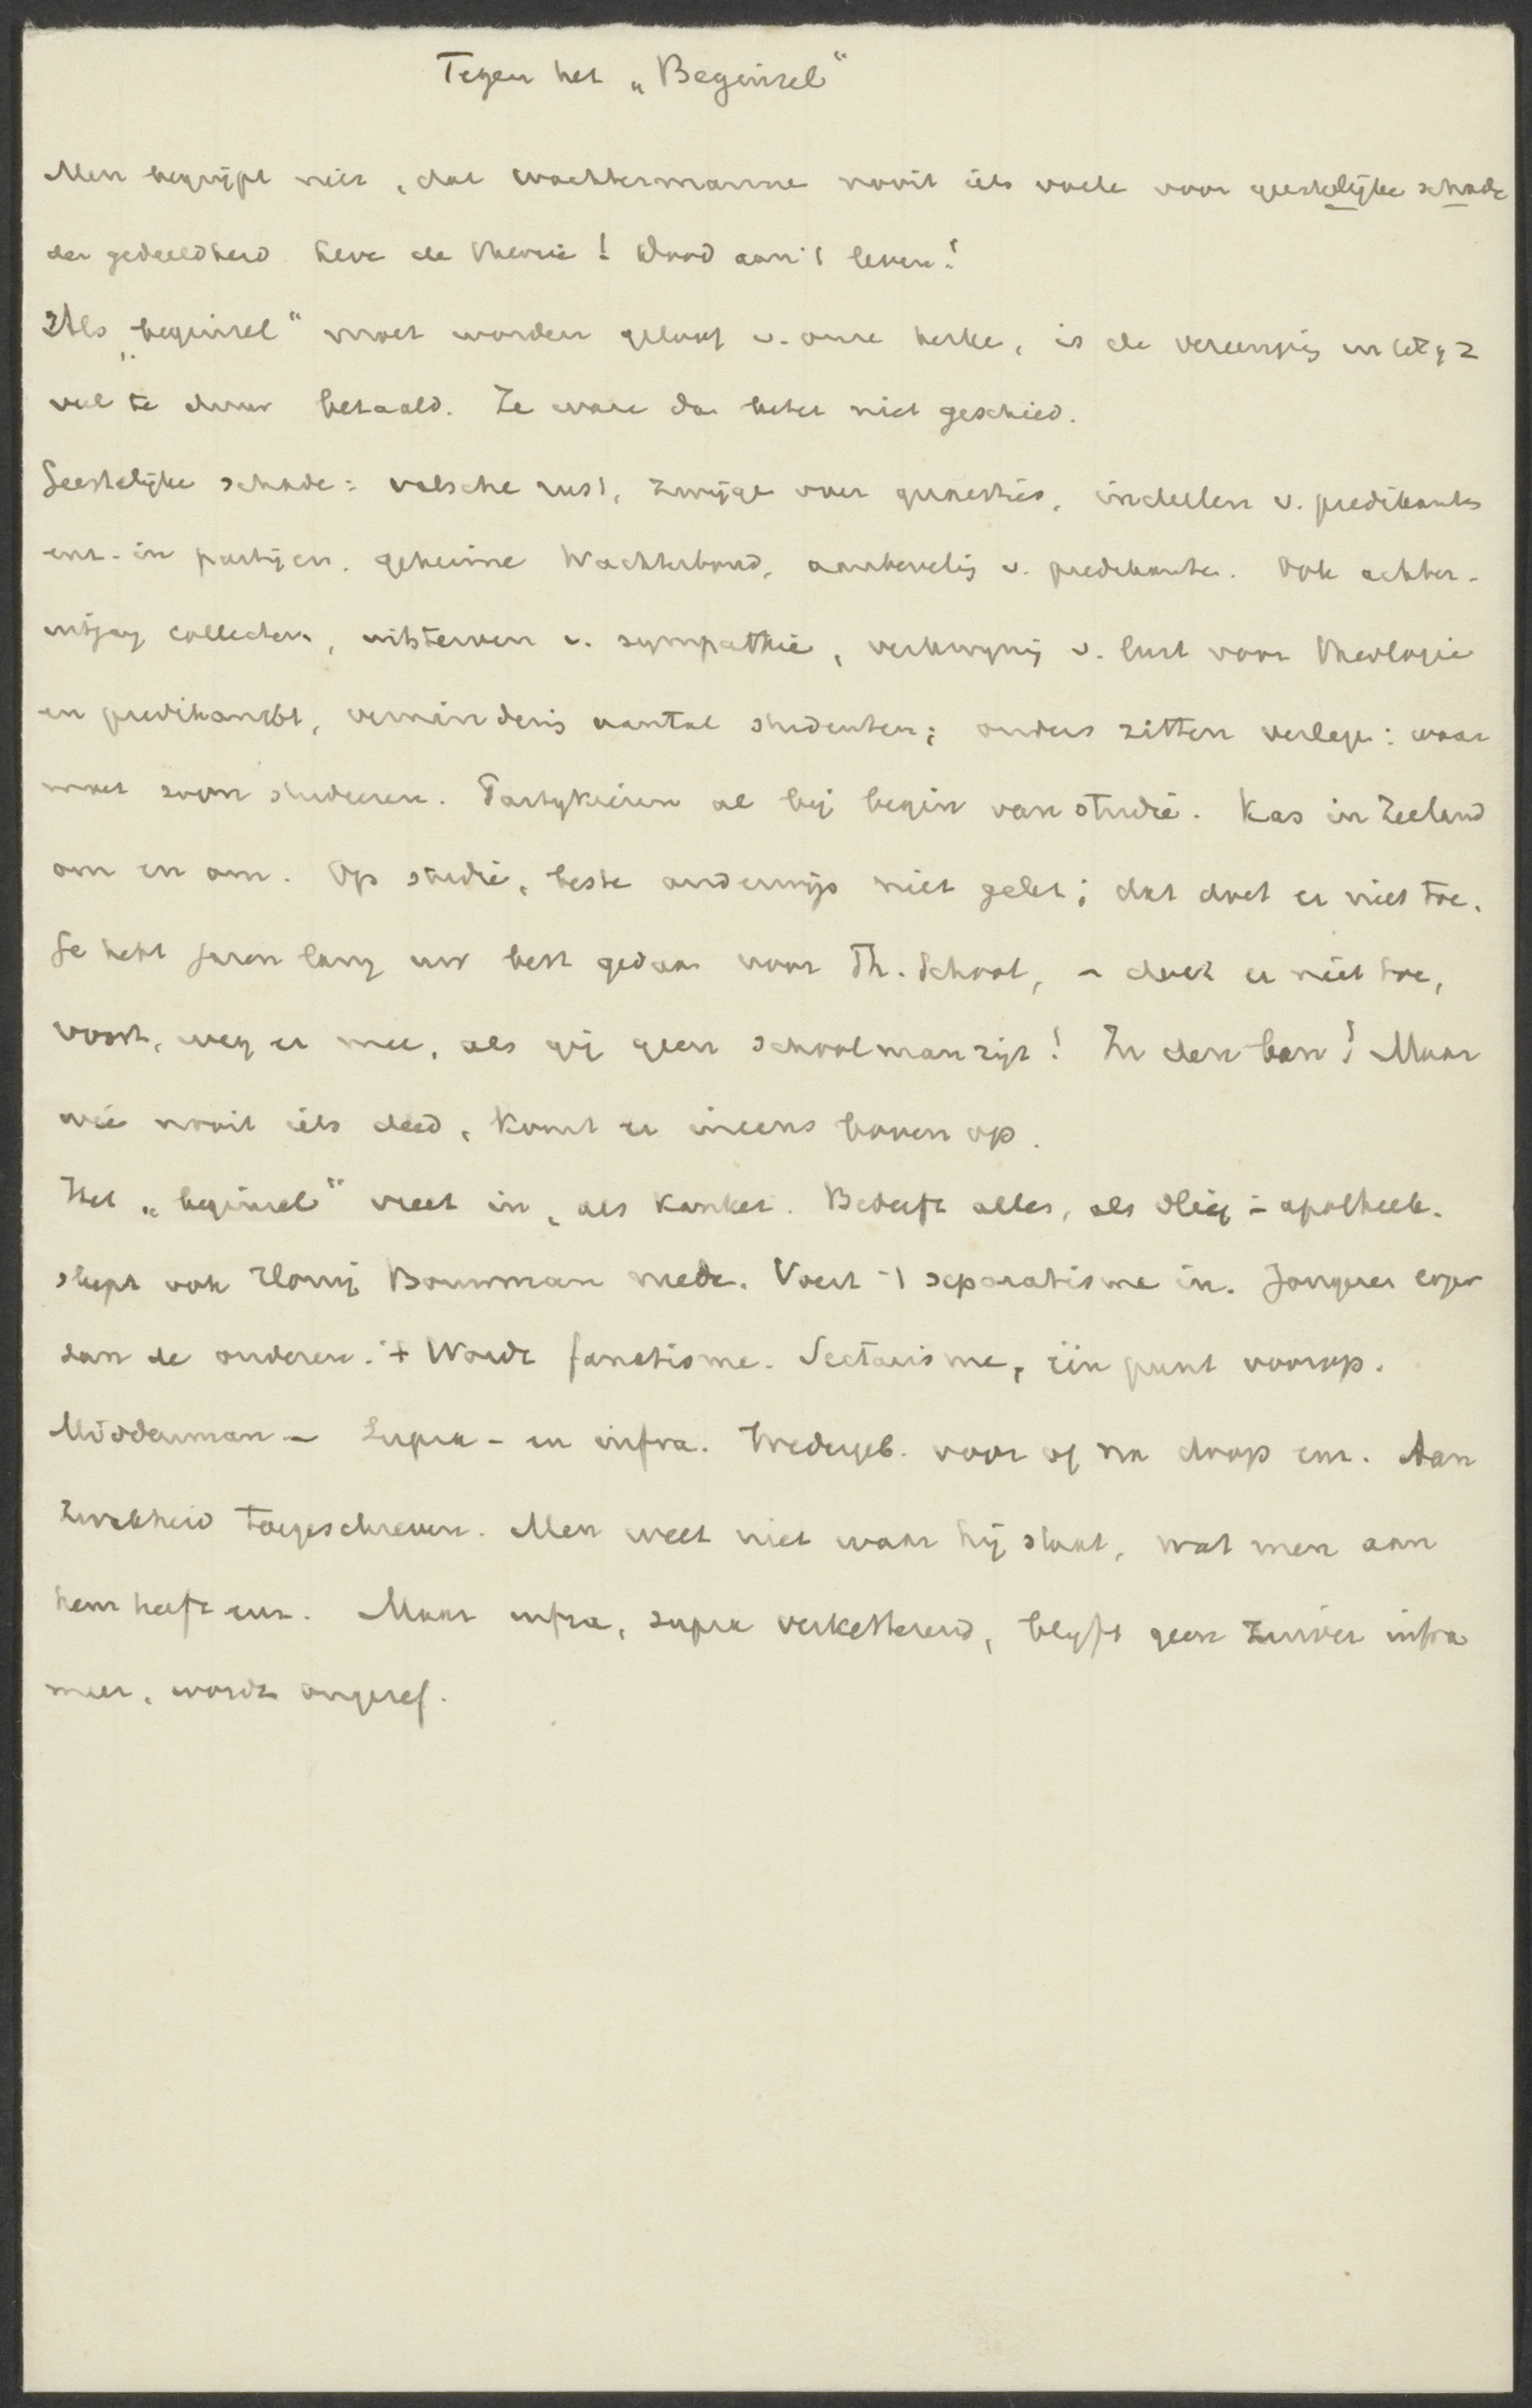 Tegen het „Beginsel“
Men begrijpt niet, dat Wachtermanne nooit iets voele voor geestelijke schade
der gedeeldheid. Leve de theorie! Dood aan 't leven!
Als „beginsel“ moet worden geloof v. onze kerke, is de vereenigig in 1892
veel te duur betaald. Ze ware da beter niet geschied.
Geestelijke schade: valsche rust, zwijge over quaesties, indeelen v. predikants
enz. in partijen. geheime Wachterbond, aanbevelig v. predikante. Ook achter-
uitgag collecten, uitsterven v. sympathie, verkwynig v. lust voor theologie
en predikambt, verminderig aantal studenten; ouders zitten verlege: waar
moet zoon studeeren. Partykiezen al bij begin van studie. Kas in Zeeland
om en om. Op studie, beste onderwijs niet gelet; dat doet er niet toe.
Ge hebt jaren lang uw best gedaan voor Th. School, - doet er niet toe,
voort, weg er mee, als gij geen schoolman zijt! In den ban! Maar
wie nooit iets deed, komt er ineens boven op.
Het „beginsel“ vreet in, als kanker. Bederft alles, als vlieg i apotheek.
sleept ook Bouwman mede. Voert 't separatisme in. Jongeren erger
dan de ouderen. + Wordt fanatisme. Sectarisme, één punt voorop.
Middenman - Supra- en infra. Wedergeb. voor of na doop enz. Aan
zwakheid toegeschreven. Men weet niet waar hij staat, wat men aan
hem heeft enz. Maar infra, supra verketterend, blyft geen zuiver infra
meer, wordt ongeref.